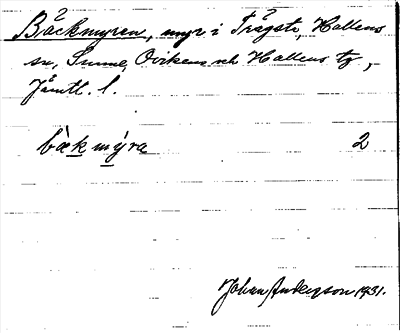 Bäckmyren, myr i Trågsta, Hallens
sn, Sunne, Ovikens och Hallens tg,
Jämtl. l.
bæk mýra 2
Johan Anderson 1931.